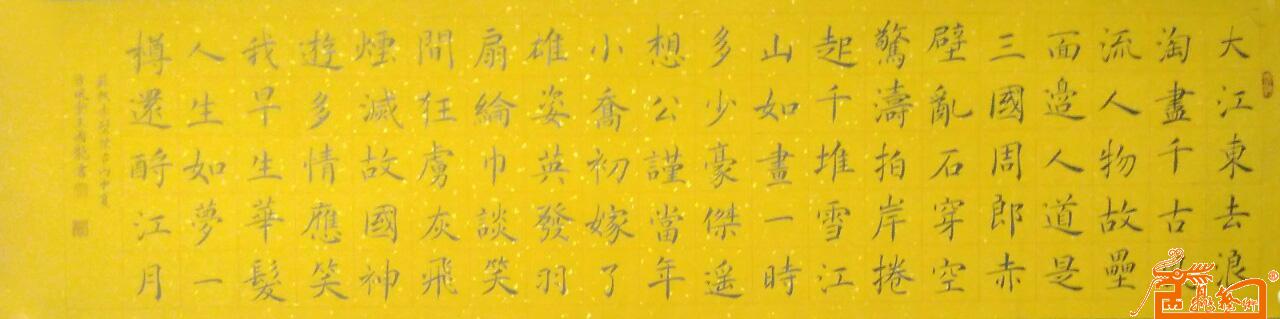 大江東去浪
淘盡千古
流人物故壘
面邉人道是
三國周郎赤
壁亂石穿空
驚濤拍岸捲
起千堆雪江
山如畫一時
多少豪傑遥
想公謹當年
小喬初嫁了
雄姿英發羽
扇綸巾談笑
間狂虜灰飛
煙滅故國神
遊多情應笑
我早生華髮
人生如夢一
樽還酹江月
蘇軾赤壁懷古丙申夏
書